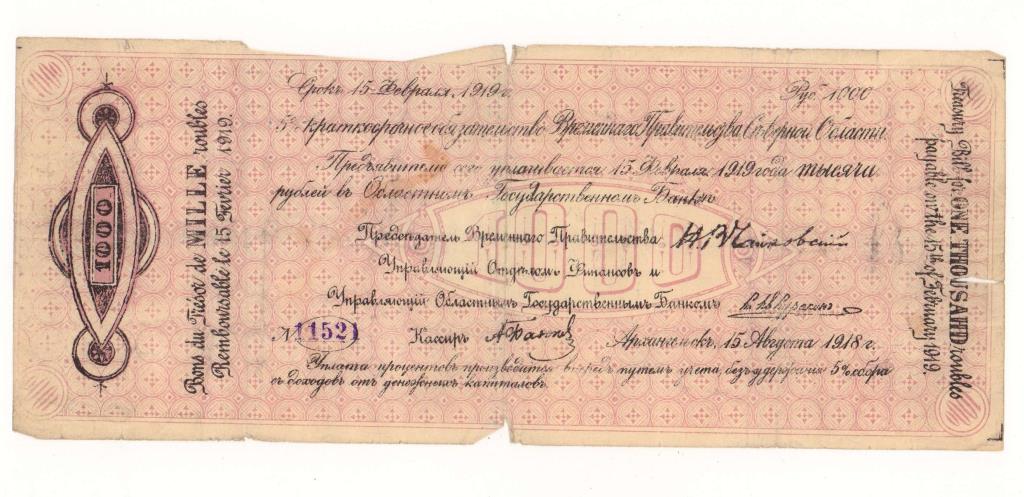 1000
Bons du Trésor de MILLE roubles
Remboursable le 15 Fevrier 1919.
Срокъ 15 Февраля 1919 г.
Руб. 1000
5% краткосрочное обязательство Временнаго Правительства Сѣверной Области
Предъявителю сего уплачивается 15 Февраля 1919 года тысяча
рублей въ Областномъ Государственномъ Банкѣ
1000
Предсѣдатель Временнаго Правительства Н. В. Чайковскій
Управляющій Отдѣломъ Финансовъ и
Управляющій Областнымъ Государственнымъ Банкомъ
№ 11521
Кассиръ
Архангельскъ, 15 Августа 1918 г.
Уплата процентовъ производится впередъ путемъ учета, безъ удержания 5% сбора
съ доходовъ отъ денежныхъ капиталовъ.
Treasury Bill for ONE THOUSAHD roubles
payable on the 15th of February 1919.